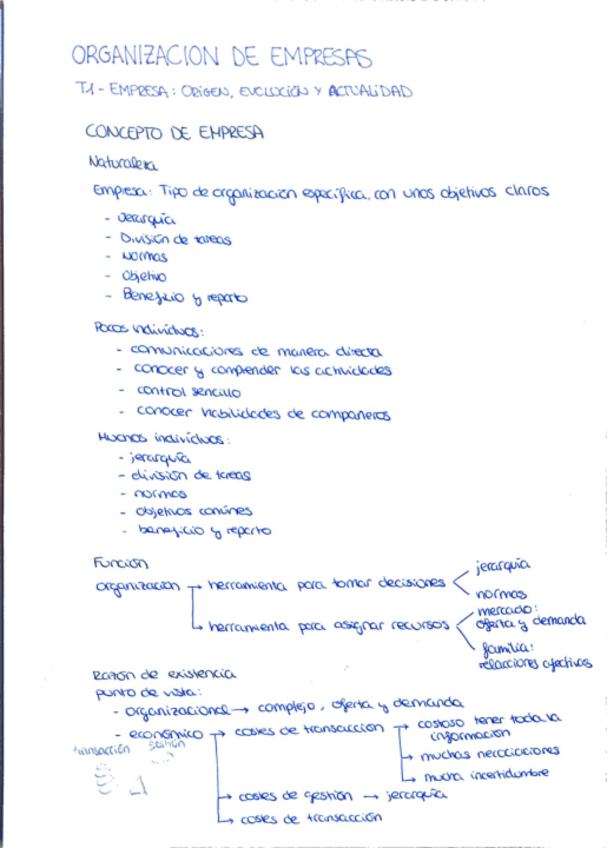 ORGANIZACION DE EMPRESAS
T.1 - EMPRESA: ORIGEN, EVOLUCIÓN Y ACTUALIDAD
CONCEPTO DE EMPRESA
Naturaleza
Empresa: Tipo de organización específica, con unos objetivos claros
- Jerarquía
- División de tareas
- Normas
- Objetivo
- Beneficio y reparto
Pocos individuos:
- comunicaciones de manera directa
- conocer y comprender las actividades
- control sencillo
- conocer habilidades de compañeros
Muchos individuos:
- jerarquía
- división de tareas
- normas
- objetivos comunes
- beneficio y reparto
Función
organización → herramienta para tomar decisiones < jerarquía
normas
→ herramienta para asignar recursos < mercado: oferta y demanda
familia: relaciones afectivas
Razón de existencia
punto de vista:
- organizacional → complejo, oferta y demanda
- económico → costes de transacción → costoso tener toda la información
→ muchas negociaciones
→ mucha incertidumbre
transacción gestión
→ costes de gestión → jerarquía
→ costes de transacción